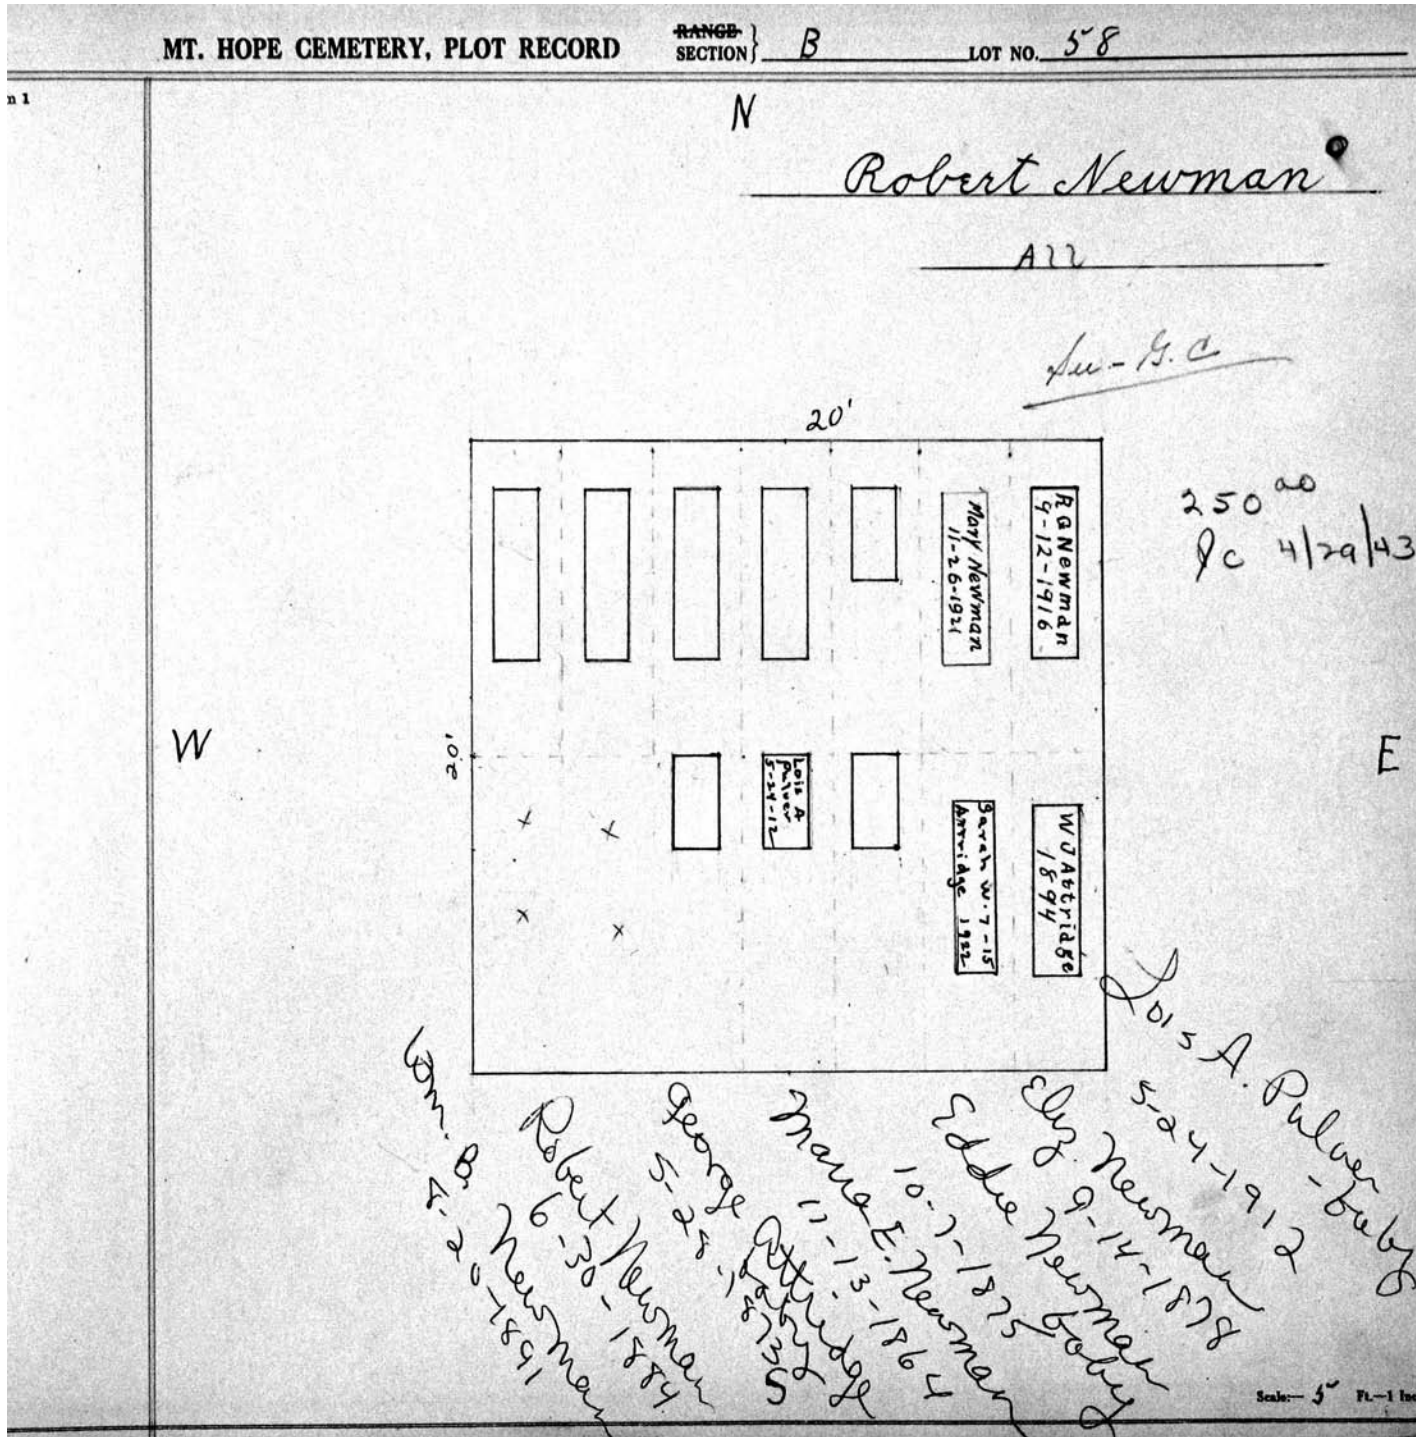 MT. HOPE CEMETERY, PLOT RECORD
RANGE
SECTION } B
LOT NO. 58
m 1
N
Robert Newman
All
G.C
20'
250 00
4/29/43
R G Newman
9-12-1916
Mary Newman
11-26-1921
W
20'
E
Lois A
Pulver
5-24-12
Sarah W. 7-15
Attridge 1922
W J Attridge
1894
Lois A. Pulver - baby
5-24-1912
Eliz. Newman
9-14-1878
Eddie Newman baby
10-7-1875
Maria E. Newman
11-13-1864
George Attridge
baby
5-28-1873
S
Robert Newman
6-30-1884
Wm. B. Newman
8-20-1891
Scale:— 5 Ft.—1 Inc